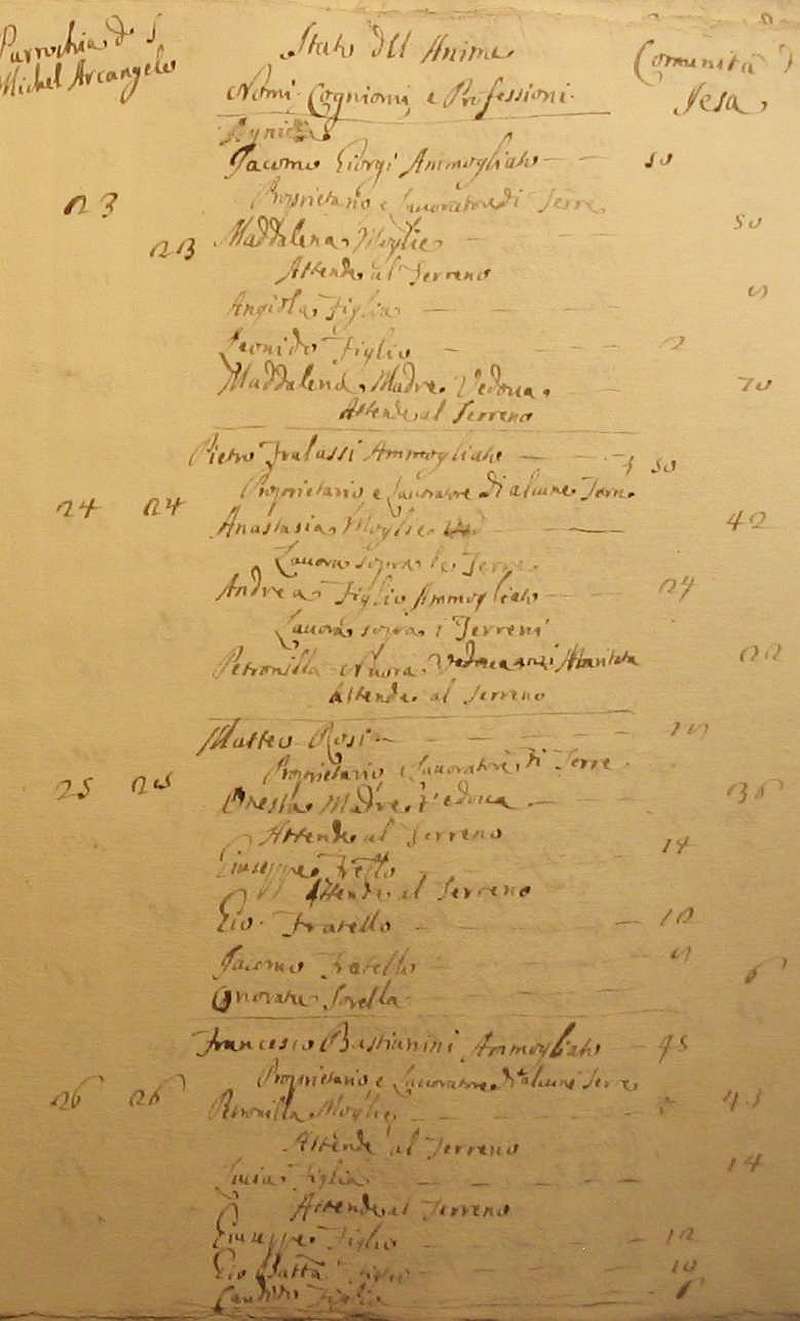 Parrochia di S
Michel Arcangelo
Stato dell Anime
Comunità di
Nomi Cogniomi e Professioni
Iesa
Giacomo Giorgi Ammogliato 50
23 Proprietario e Lauoratore di Terre
23 Maddalena Moglie 50
Attende al Terreno
Angiola Figlia
Leonido Figlio 2
Maddalena Madre Vedoua 70
Attende al Terreno
Pietro Fralassi Ammogliato 50
Proprietario e Lauoratore di alcune Terre
24 24 Anastasia Moglie 42
Lauora sopra le Terre
Andrea Figlio Ammogliato 24
Lauora sopra i Terreni
Petronilla Nuora Maritata 22
Attende al Terreno
Matteo Rosi
Proprietario e Lauoratore di Terre
25 25 Onesta Madre Vedoua
Attende al Terreno
Giuseppe Frello 14
Attende al Terreno
Gio. Fratello 12
Giacomo Fratello
Onorata Sorella 6
Francesco Bastianini Ammogliato 45
Proprietario e Lauoratore di alcune Terre
26 26 Petronilla Moglie 43
Attende al Terreno
Lucia Figlia 14
Attende al Terreno
Giuseppe Figlio 12
Gio Batta Figlio 10
Figlio 6